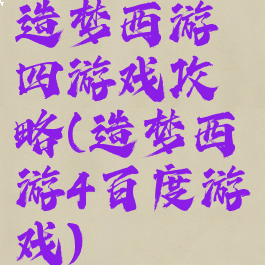 造梦西游
四游戏攻
略(造梦西
游4百度游
戏)